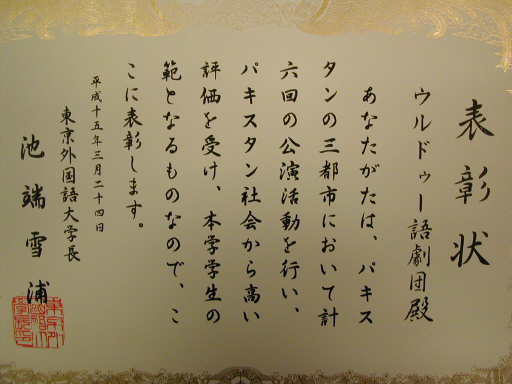 表彰状
ウルドゥー語劇団殿
あなたがたは、パキス
タンの三都市において計
六回の公演活動を行い、
パキスタン社会から高い
評価を受け、本学学生の
範となるものなので、こ
こに表彰します。
平成十五年三月二十四日
東京外国語大学長
池端雪浦